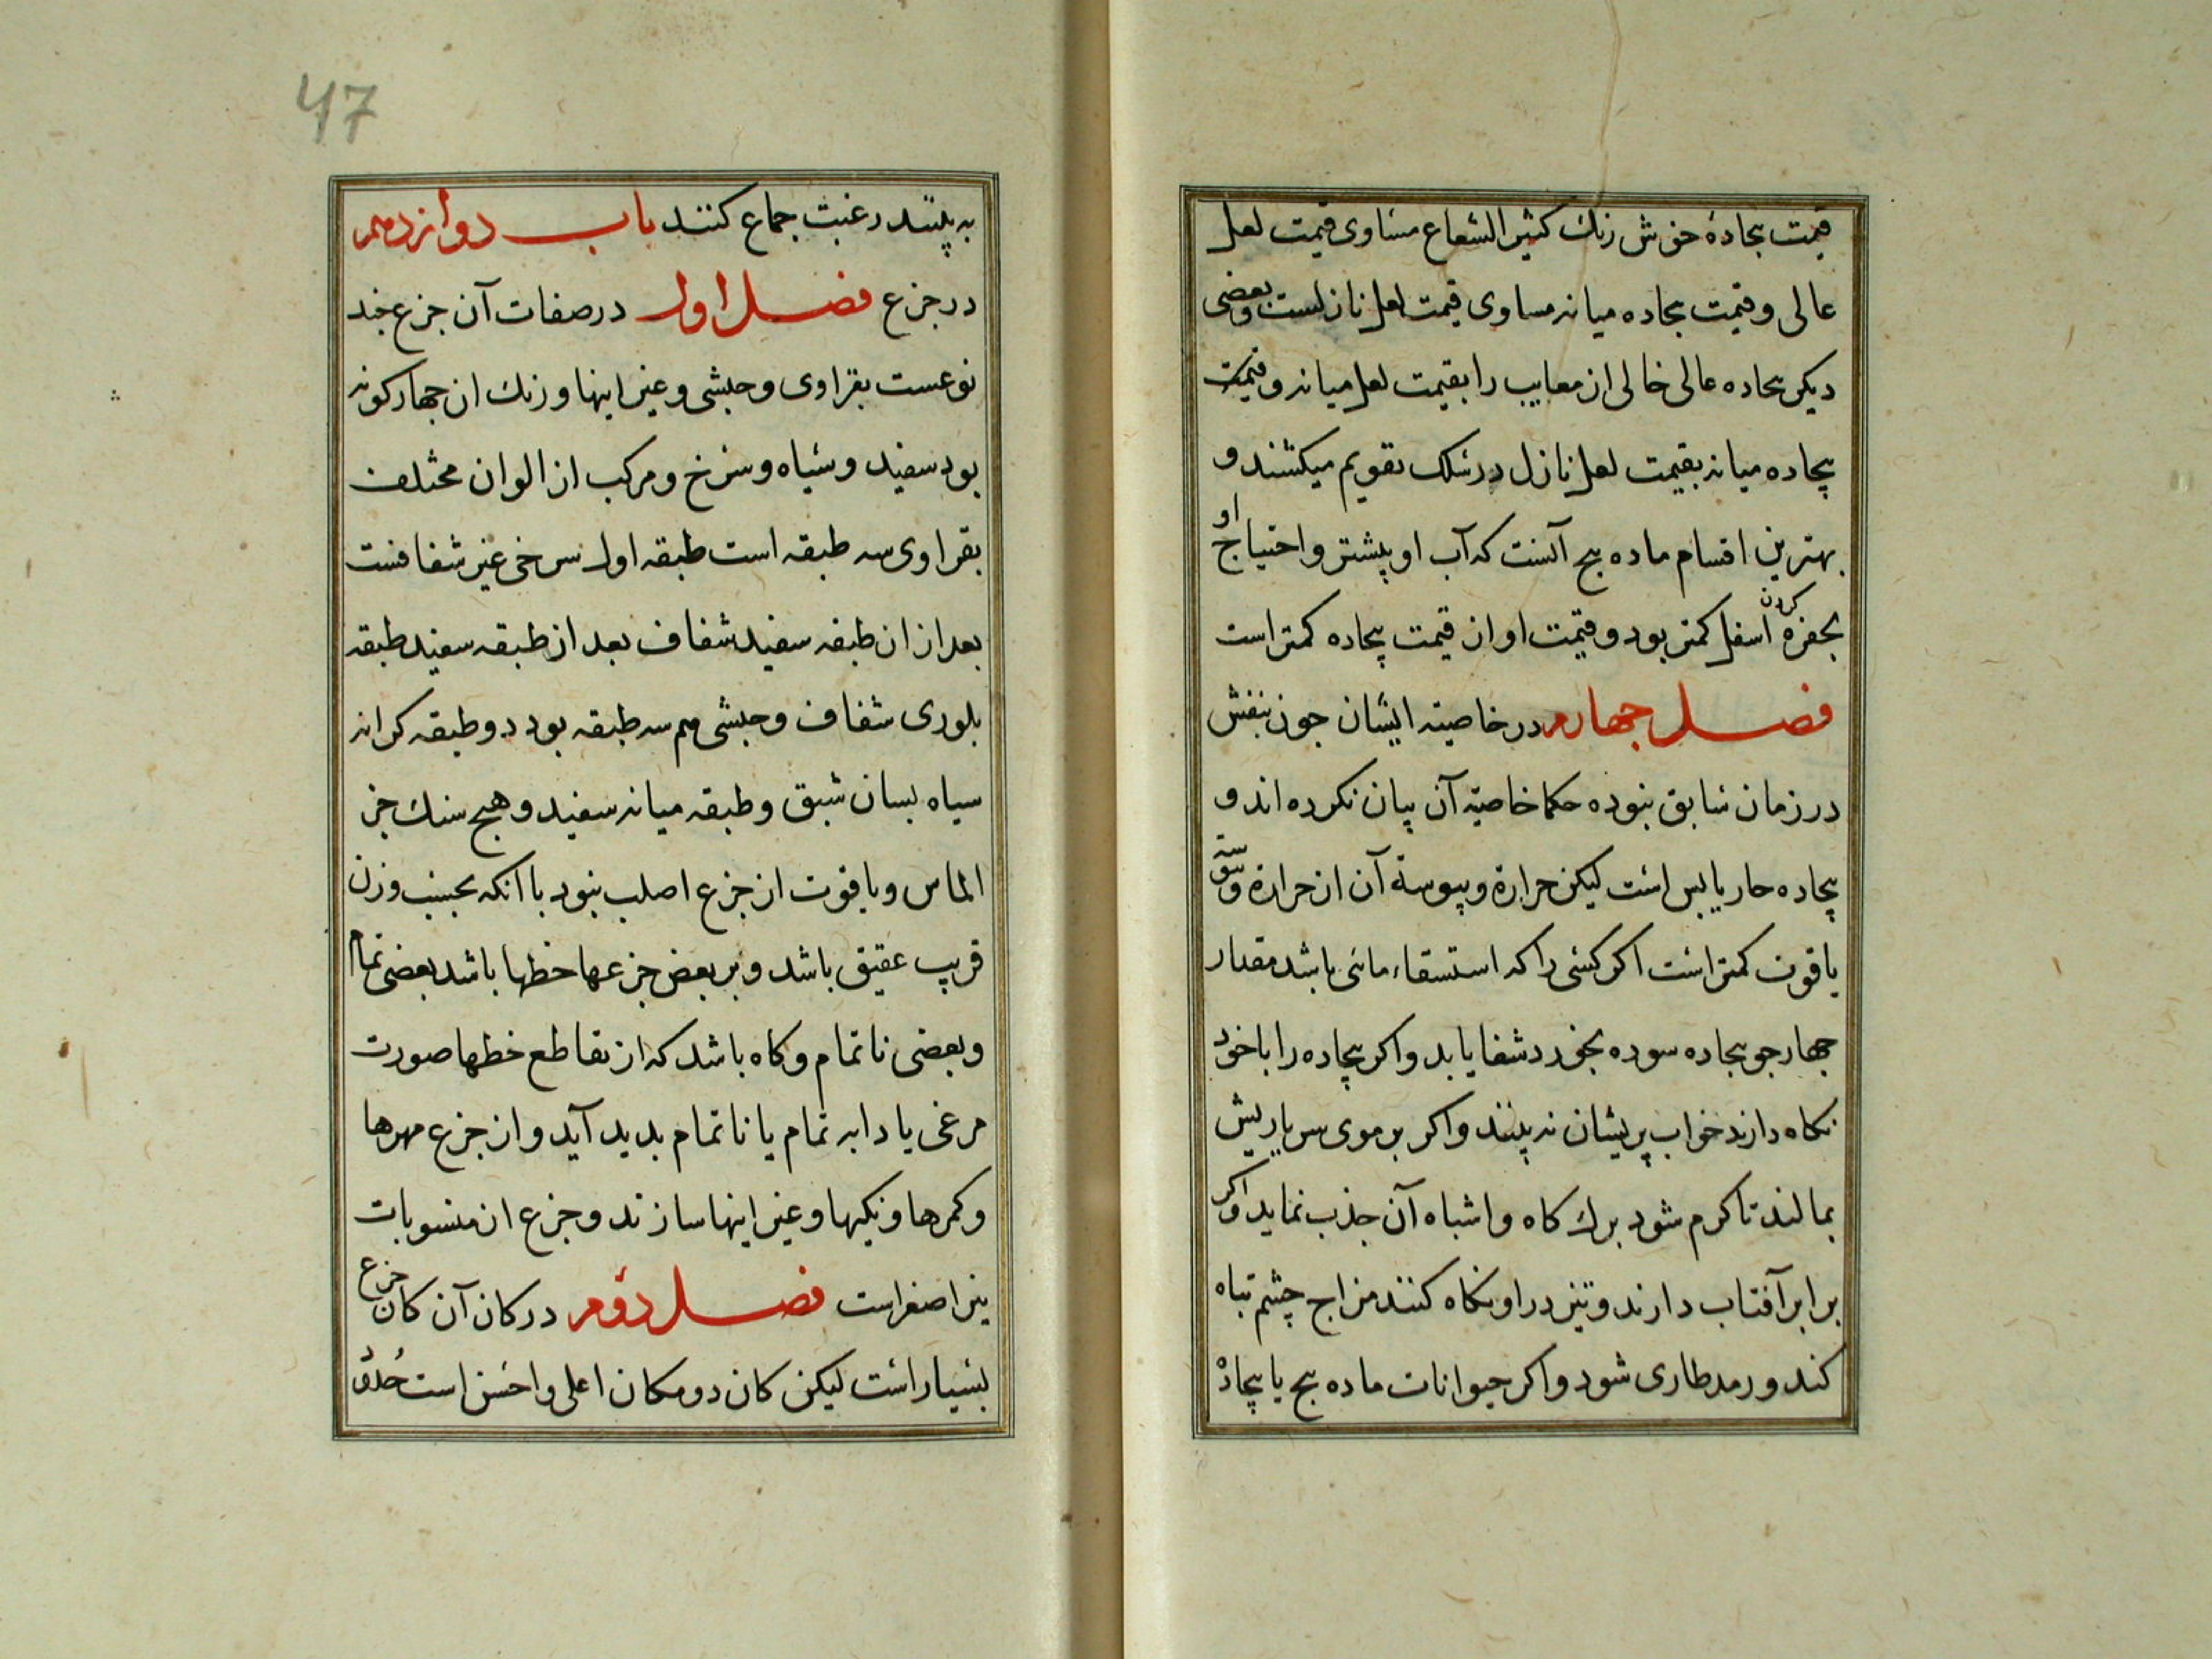 قیمت بجادهٔ خوش رنك كثیر الشعاع مساوی قیمت لعل
عالی و قیمت بجاده میانه مساوی قیمت لعل نازلست و بعضی
دیكر بجاده عالی خالی از معایب را بقیمت لعل میانه و قیمت
بیجاده میانه بقیمت لعل نازل در سلك تقویم میكشند و
بهترین اقسام ماده بج آنست كه آب او بیشتر و احتیاج او
بحفره كردن اسفل كمتر بود و قیمت او از قیمت بیجاده كمتر است
فصل جهارم در خاصیته ایشان جون بنفش
در زمان سابق نبوده حكما خاصیته آن بیان نكرده اند و
بیجاده حار یابس است لیكن حرارة و یبوسة آن از حرارة و یبوسة
یاقوت كمتر است اكر كسی را كه استسقاء مائی باشد مقدار
جهار جو بیجاده سوده بخورد شفا یابد و اكر بیجاده را با خود
نكاه دارند خواب پریشان نه بینند و اكر بر موی سر یا ریش
بمالند تا كرم شود برك كاه و اشباه آن جذب نماید و اكر
برابر آفتاب دارند و تیز در او نكاه كنند مزاج چشم تباه
كند و رمد طاری شود و اكر حیوانات ماده بج یا بیجادهٔ
47
به بینند رغبت جماع كنند باب دوازدهم
در جزع فصل اول در صفات آن جزع جند
نوعست بقراوی و حبشی و غیر اینها و رنك ان جهار كونه
بود سفید و سیاه و سرخ و مركب از الوان مختلف
بقراوی سه طبقه است طبقه اول سرخی غیر شفافست
بعد از ان طبقه سفید شفاف بعد از طبقه سفید طبقه
بلوری شفاف و حبشی هم سه طبقه بود دو طبقه كرانه
سیاه بسان شبق و طبقه میانه سفید و هیج سنك جز
الماس و یاقوت از جزع اصلب نبود با انكه بحسب وزن
قریب عقیق باشد و بر بعض جزعها خطها باشد بعضی تمام
و بعضی ناتمام و كاه باشد كه از تقاطع خطها صورت
مرغی یا دابه تمام یا ناتمام بدید آید و از جزع مهرها
و كمرها و نكینها و غیر اینها سازند و جزع از منسوبات
نیر اصغر است فصل دوم در كان آن كان جزع
بسیار است لیكن كان دو مكان اعلی و احسن است